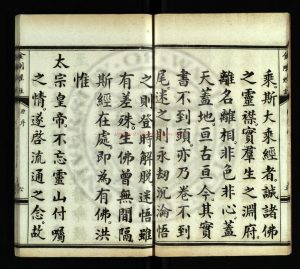 乘斯大乘經者誠諸佛
之靈襟實羣生之淵府
離名離相非色非心蓋
天蓋地亘古亘今其實
書不到頭亦乃卷不到
尾迷之則永劫沉淪悟
之則登時解脫迷悟雖
有差殊生佛曾無間隔
斯經在處即為有佛洪
惟
太宗皇帝不忘靈山付囑
之情遂啓流通之念故